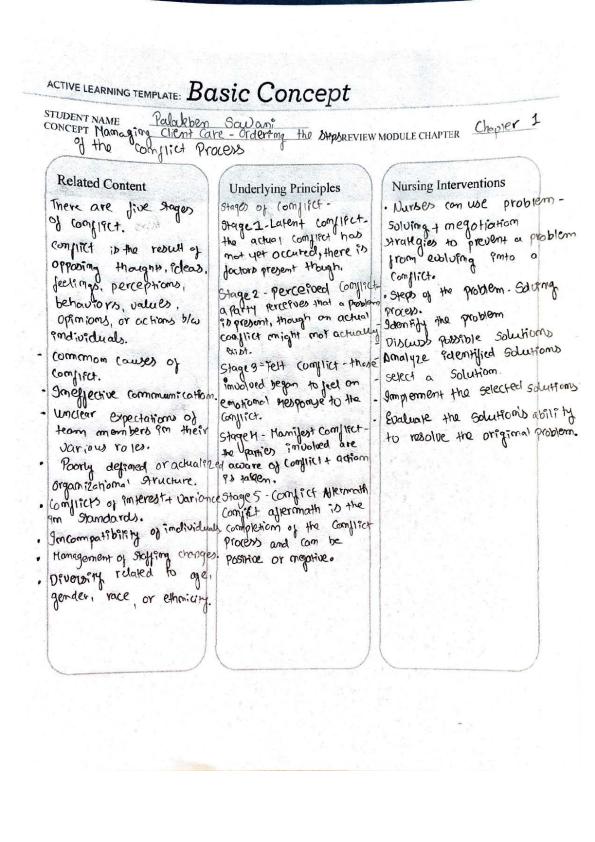 ACTIVE LEARNING TEMPLATE: Basic Concept
STUDENT NAME Palakben Savani
CONCEPT Managing Client Care - Ordering the steps REVIEW MODULE CHAPTER Chapter 1
of the Conflict Process
Related Content
There are five stages
of conflict.
conflict is the result of
opposing thoughts, ideas,
feelings, perceptions,
behaviors, values,
opinions, or actions b/w
individuals.
- Common causes of
conflict.
- Ineffective communication.
- Unclear expectations of
team members in their
various roles.
• Poorly defined or actualized
organizational structure.
• Conflicts of interest + variance
in standards.
• Incompatibility of individuals
• Management of staffing changes.
• Diversity related to age,
gender, race, or ethnicity.
Underlying Principles
Stages of Conflict -
Stage 1 - Latent conflict -
the actual conflict has
not yet occured, there is
factors present though.
Stage 2 - perceived conflict -
a party perceives that a problem
is present, though an actual
conflict might not actually
exist.
Stage 3 = felt conflict - those
involved began to feel an
emotional response to the
conflict.
Stage 4 - Manifest Conflict -
the parties involved are
aware of conflict + action
is taken.
Stage 5 - Conflict Aftermath
Conflict aftermath is the
completion of the conflict
process and can be
positive or negative.
Nursing Interventions
• Nurses can use problem -
solving + negotiation
strategies to prevent a problem
from evolving into a
conflict.
• Steps of the problem - Solving
process.
- Identify the problem
- Discuss possible solutions
- Analyze identified solutions
- select a solution.
- Implement the selected solutions
- Evaluate the solutions ability
to resolve the original problem.